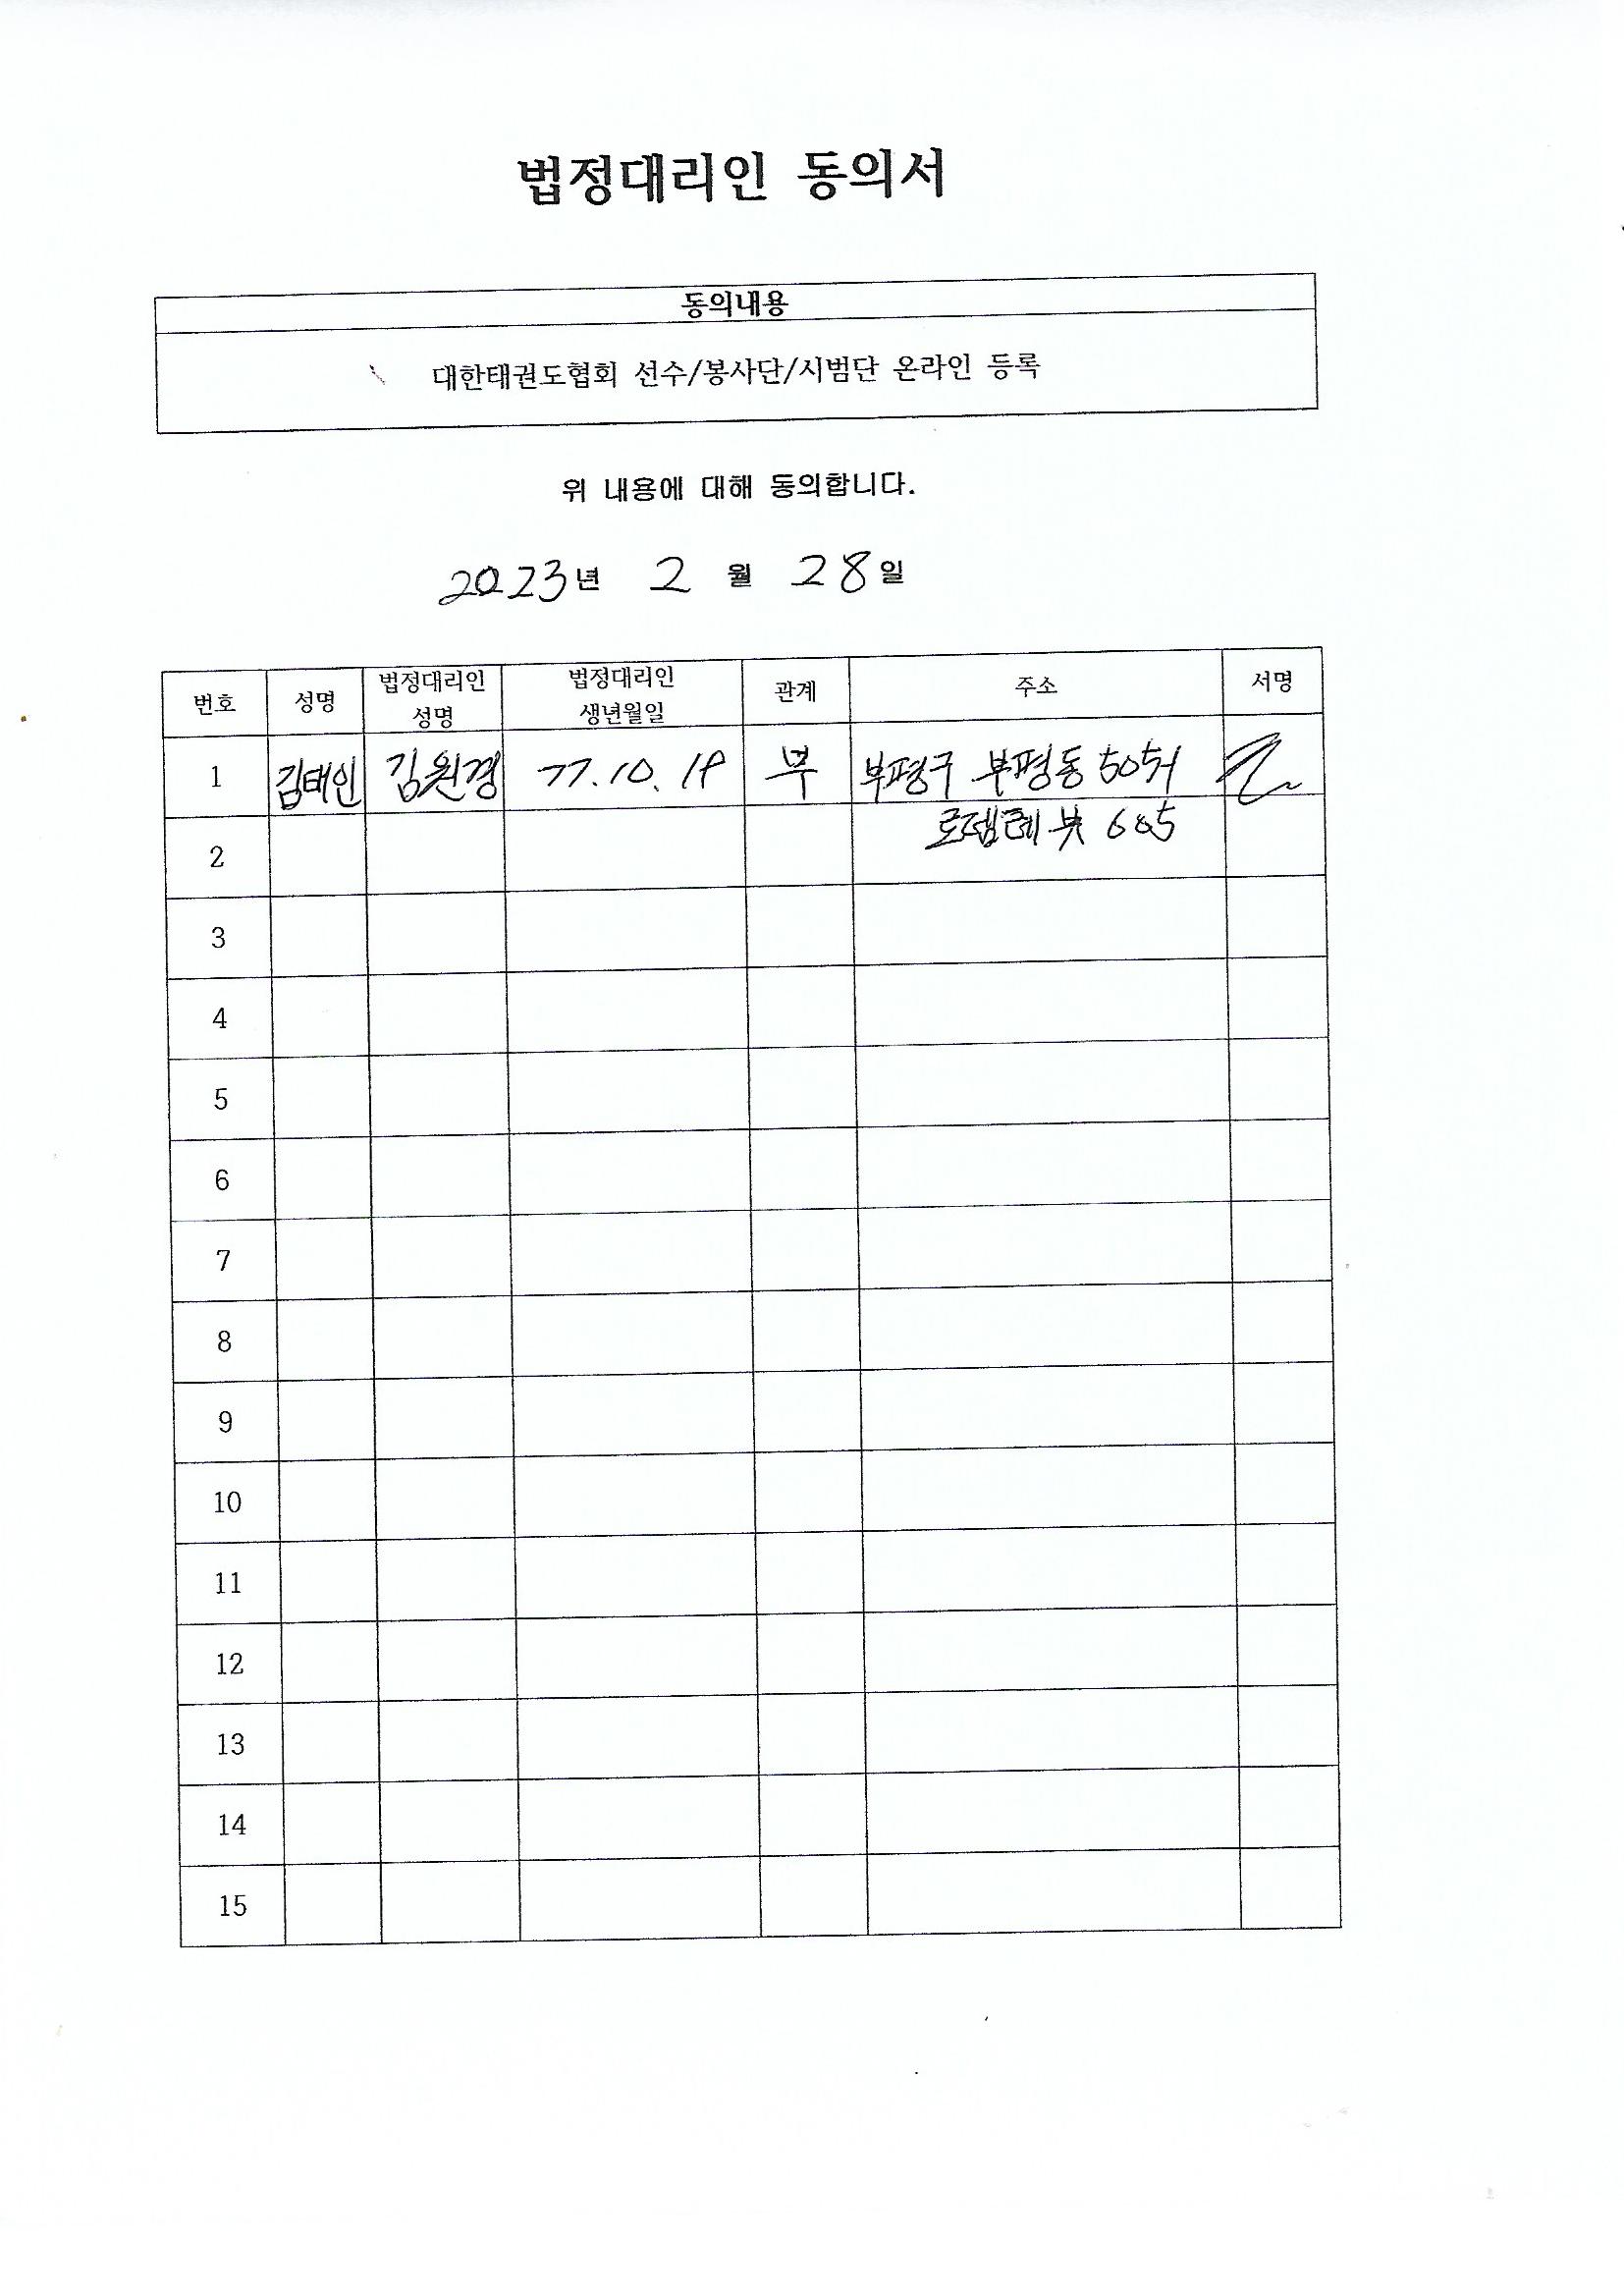 법정대리인 동의서
동의내용
대한태권도협회 선수/봉사단/시범단 온라인 등록
위 내용에 대해 동의합니다.
2023년 2 월 28일
번호 성명 법정대리인 성명 법정대리인 생년월일 관계 주소 서명
1 김태인 김원경 77.10. 부 부평구 부평동
605
2
3
4
5
6
7
8
9
10
11
12
13
14
15